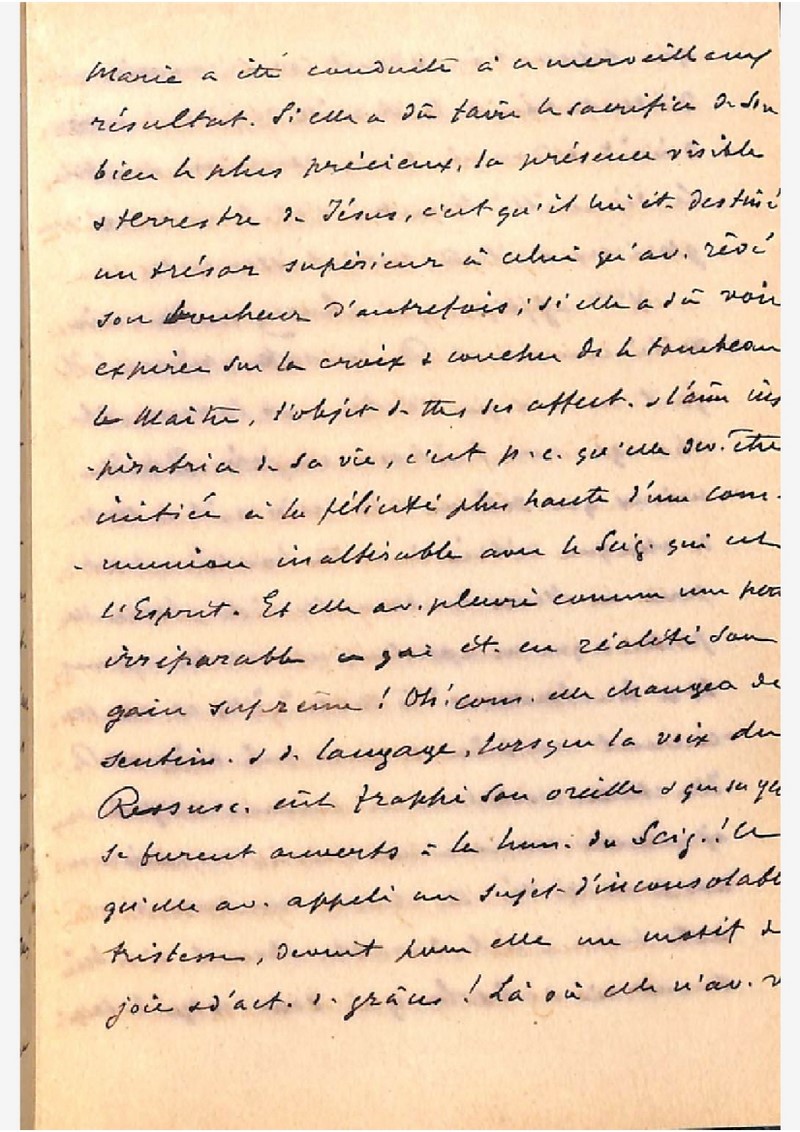 Marie a été conduite à ce merveilleux
résultat. Si elle a dû faire le sacrifice de son
bien le plus précieux, la présence visible
& terrestre de Jésus, c'est qu'il lui ét. destiné
un trésor supérieur à celui qu'av. rêvé
son bonheur d'autrefois ; si elle a dû voir
expirer sur la croix & coucher ds le tombeau
le Maître, l'objet de ttes ses affect. & l'âme ins
-piratrice de sa vie, c'est p.c. qu'elle dev. être
initiée à la félicité plus haute d'une com-
-munion inaltérable avec le Seig. qui est
l'Esprit. Et elle av. pleuré comme une per
irréparable ce qui ét. en réalité son
gain suprême ! Oh! com. elle changea de
sentim. & de langage, lorsque la voix du
Ressusc. eût frappé son oreille & que ses ye
se furent ouverts à la lum. du Seig. ! Ce
qu'elle av. appelé un sujet d'inconsolabl
tristesse, devint pour elle un motif de
joie & d'act. de grâces ! Là où elle n'av. v